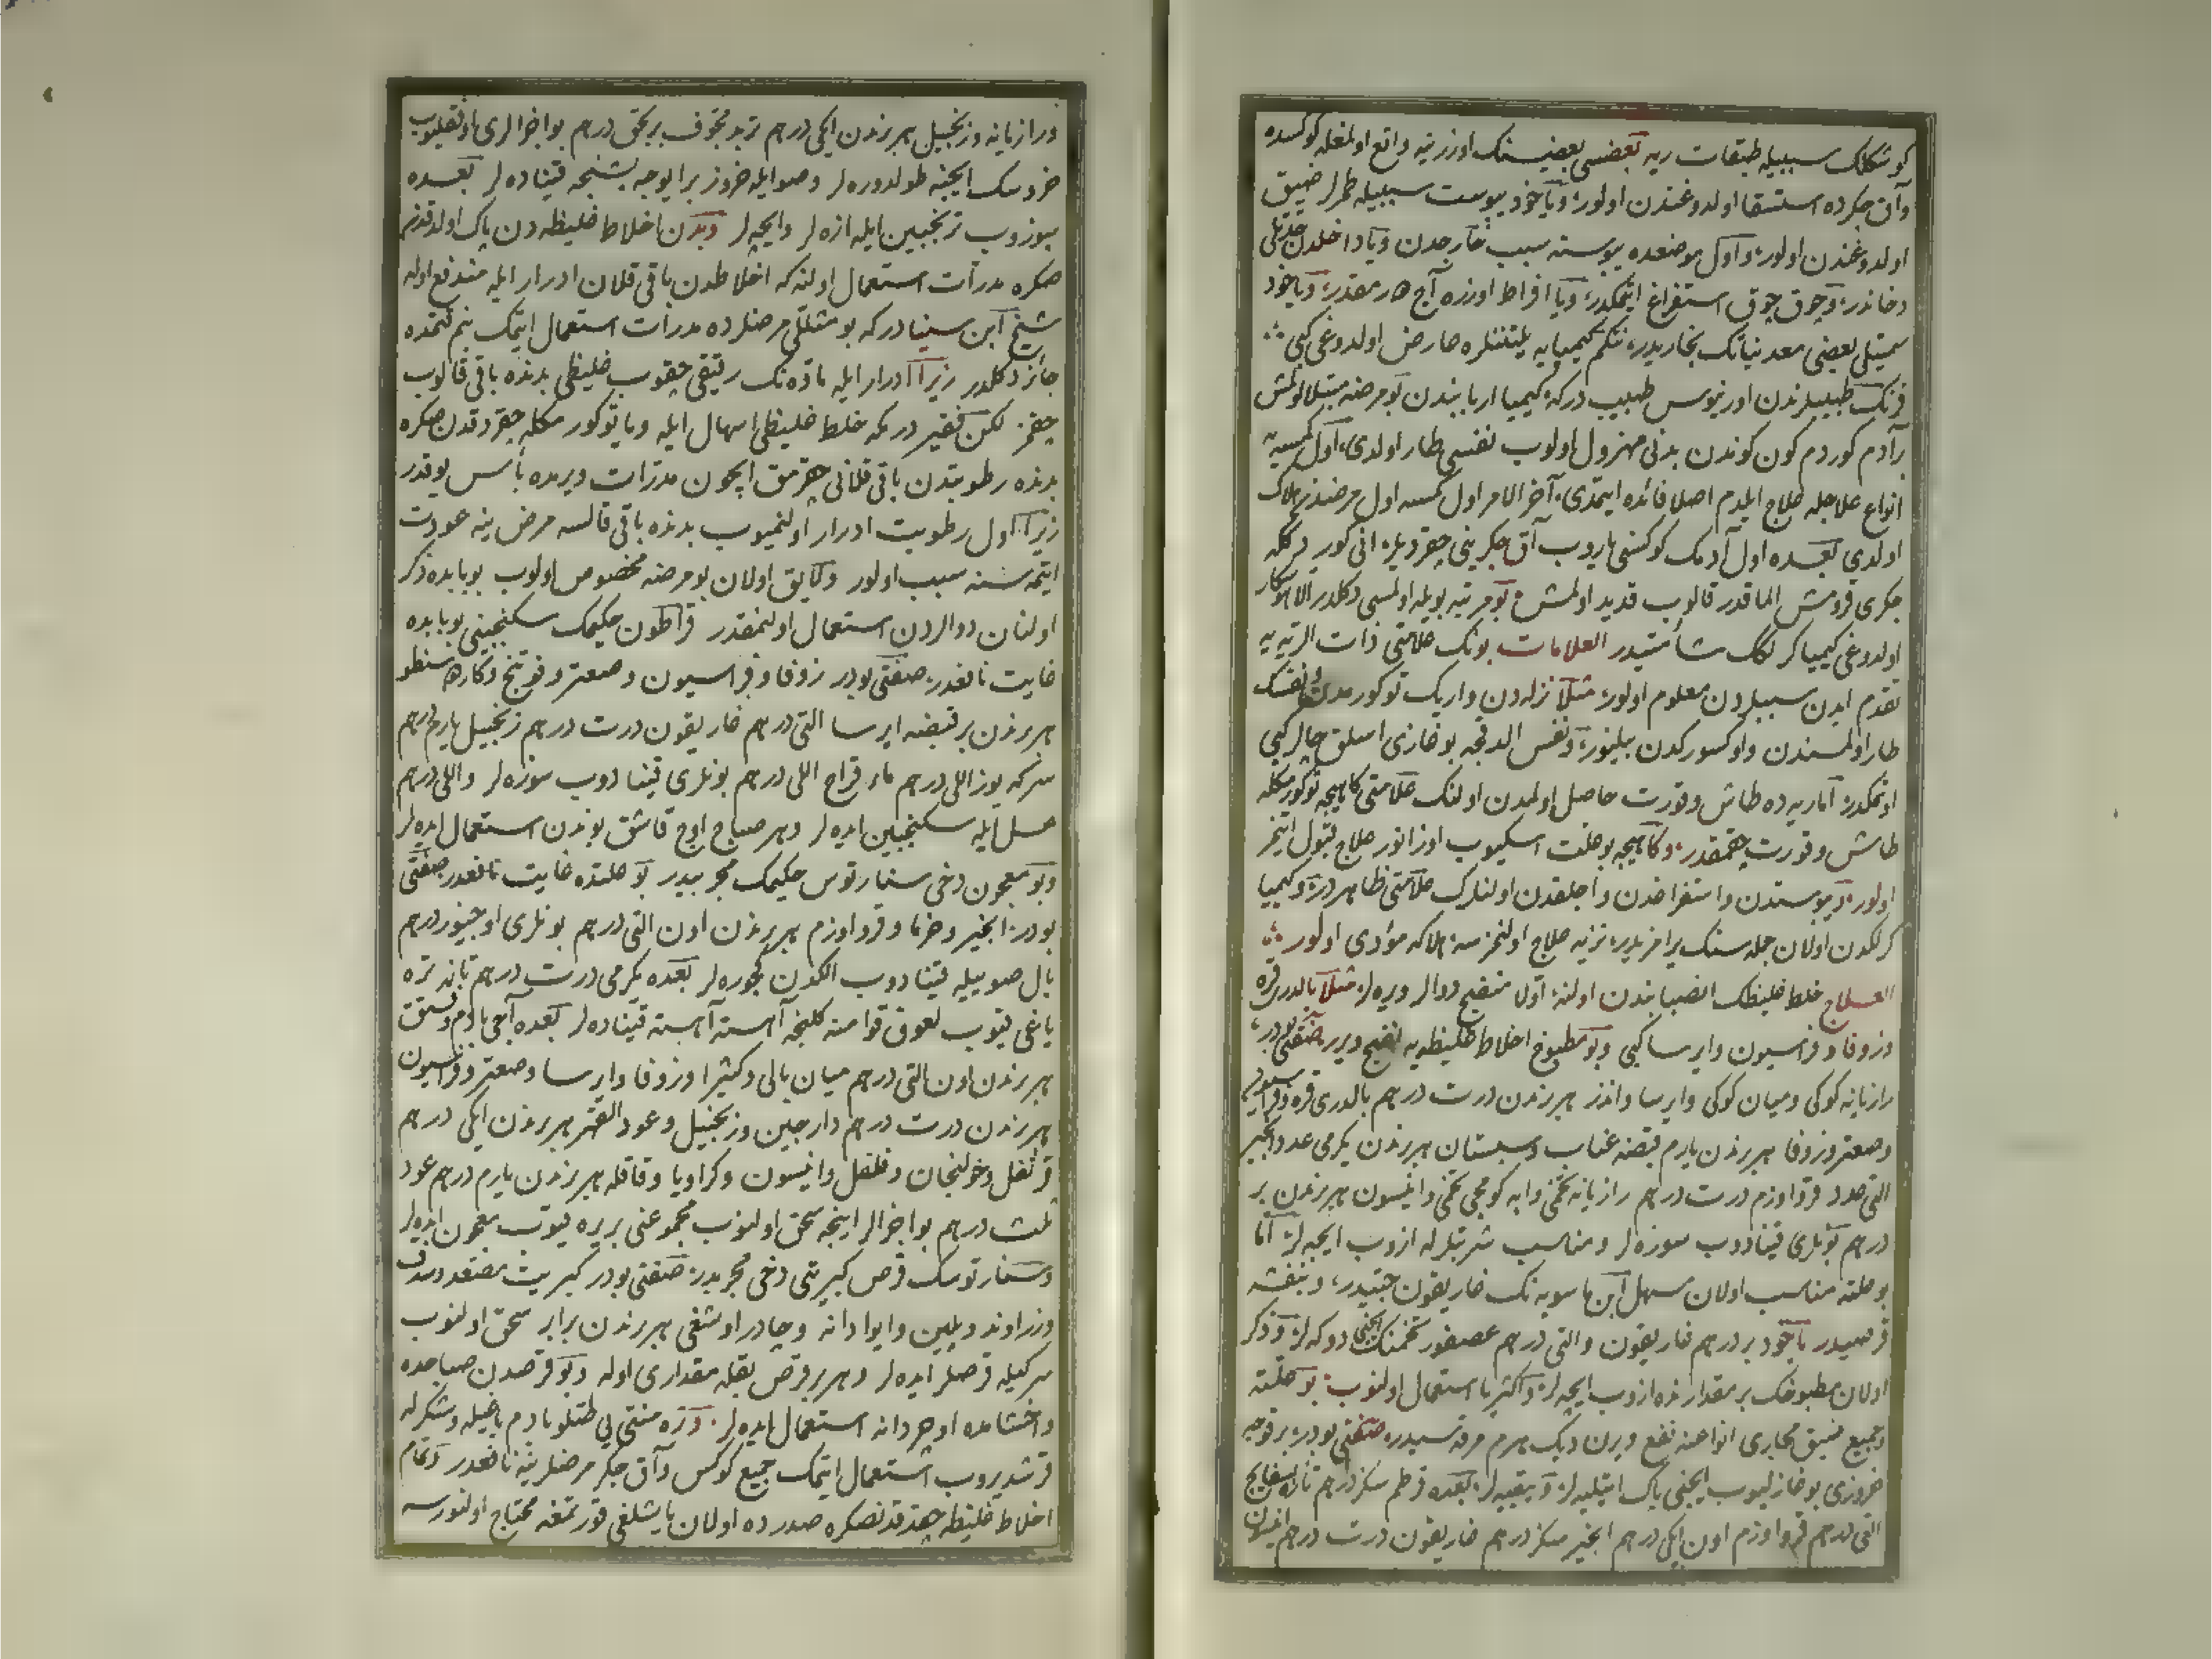 كوشكلك سببيله طبقات ريه بعضسى بعضيسنك اوزرينه واقع اولمغله كوكسده
وآق جكرده استسقا اولدوغندن اولور؛ ويا خود يبوست سببيله طمرلر ضيق
اولدوغندن اولور؛ واول موضعده يبوسته سبب خارجدن ويا داخلدن
دخاندر؛ وچوق چوق استفراغ ايتمكدر؛ ويا افراط اوزره آج مقدر؛ ويا خود
سميتلى بعضى معدنياتك بخاريدر، نتكم كيميايه يلتننلره عارض اولدوغى كبى
فرنك طبيبلرندن اورنيوس طبيب دركه كيميا اربابندن بو مرضه مبتلا اولمش
بر آدم كوردم كون كوندن بدنى مهزول اولوب نفسى طار اولدى؛ اول كمسيه
انواع علاجله علاج ايلدم اصلا فائده ايتمدى. آخر الامر اول كمسه اول مرضدن هلاك
اولدى بعده اول آدمك كوكسنى ياروب آق جكرينى چقرديلر؛ انى كوردمكه
جكرى قرومش الما قدر قالوب قديد اولمش بو مرتبه بويله اولمسى دكلدر الا
اولدوغى كيمياكرلك شأمتيدر العلامات بونك علامتى ذات الريه يه
تقدم ايدن سببلردن معلوم اولور؛ مثلا نزله دن واريك توكورمدن نفسك
طار اولمسندن واوكسوركدن بيلنور؛ ونفس الدقجه بوغازى اصلق چالر كبى
اوتمكدر؛ اما ريه ده طاش وقورت حاصل اولمدن اولنك علامتى كاهيجه توكورمكله
طاش وقورت چقمقدر؛ وكاهيجه بو علت اسكيوب اوزانور علاج قبول ايتمز
اولور؛ ويبوستدن واستفراغدن واجلقدن اولنلرك علامتى ظاهردر؛ وكيميا
كرلكدن اولان جمله سنك يرامزيدر؛ تزيه علاج اولنمزسه هلاكه مؤدى اولور
العلاج خلط غليظك انصبابندن اولنه؛ اولا منضج دوالر ويره لر؛ مثلا بالدرى قره
وزوفا وفراسيون وايرسا كبى وبو مطبوخ اخلاط غليظه يه نضج ويرر صنعتى بودر؛
رازيانه كوكى وميان كوكى وايرسا واندز هر برندن درت درهم بالدرى قره وفراسيون
وصعتر وزوفا هر برندن يارم قبضه عناب وسبستان هر برندن يكرمى عدد وانجير
التى عدد قرو اوزم درت درهم رازيانه تخمى وابه كومجى تخمى وانيسون هر برندن بر
درهم بونلرى قينادوب سوزه لر ومناسب شربتلرله ازوب ايچه لر؛ اما
بو علته مناسب اولان مسهل ابن ماسويه نك غاريقون حبيدر؛ وبنفشه
قرصيدر يا خود بر درهم غاريقون والتى درهم عصفور تخمنك ايچنى دوكه لر؛ وذكر
اولان مطبوخك بر مقدارنده ازوب ايچه لر؛ واكثريا استعمال اولنوب بو علته
وجميع ضيق مجارى انواعنه نفع ويرن ديك هرم مرقه سيدر؛ صنعتى بودر؛ بر قوجه
خروزى بوغازليوب ايچنى پاك ايتليه لر؛ ويقيه لر؛ بعده قرطم سكز درهم تازه بسفايج
التى درهم قرو اوزم اون ايكى درهم انجير سكز درهم غاريقون درت درهم انيسون
ورازيانه وزنجبيل هر برندن ايكى درهم تربد مجوف بر بچق درهم بو اجزالرى
خروسك ايچنه طولدوره لر وصو ايله خروز براى وجه پشنجه قيناده لر بعده
سوزوب ترنجبين ايله ازه لر وايچه لر وبدن اخلاط غليظه دن پاك اولدقدن
صكره مدرات استعمال اولنه كه اخلاطدن باقى قلان ادرار ايله مندفع اوله
شيخ ابن سينا دركه بو مثللى مرضلرده مدرات استعمال ايتمك بنم قتمده
جائز دكلدر زيرا ادرار ايله ماده نك رقيقى چقوب غليظى بدنده باقى قالوب
چقمز لكن فقير دركه خلط غليظى اسهال ايله ويا توكورمكله چقردقدن صكره
بدنده رطوبتدن باقى قلانى چقرمق ايچون مدرات ويرمده بأس يوقدر
زيرا اول رطوبت ادرار اولنميوب بدنده باقى قالسه مرض ينه عودت
ايتمه سنه سبب اولور ولايق اولان بو مرضه مخصوص اولوب بو بابده ذكر
اولنان دوالردن استعمال اولنمقدر قراطون حكيمك سكنجبينى بو بابده
غايت نافعدر؛ صنعتى بودر زوفا وفراسيون وصعتر وفوتنج
هر برندن بر قبضه ايرسا التى درهم غاريقون درت درهم زنجبيل يارم درهم
سركه يوز اللى درهم ماء قراح اللى درهم بونلرى قينادوب سوزه لر واللى درهم
عسل ايله سكنجبين ايده لر وهر صباح اوج قاشق بوندن استعمال ايده لر
وبو معجون دخى سنارتوس حكيمك مجربيدر بو علتده غايت نافعدر صنعتى
بودر؛ انجير وخرما وقرو اوزم هر برندن اون التى درهم بونلرى اوچيوز درهم
بال صوييله قينادوب الكدن كچوره لر بعده يكرمى درت درهم تازه تره
ياغى قيوب لعوق قوامنه كلنجه آهسته آهسته قيناده لر بعده آجى بادم وفستق
هر برندن اون التى درهم ميان بالى وكثيرا وزوفا وايرسا وصعتر وفراسيون
هر برندن درت درهم دارجين وزنجبيل وعود القهر هر برندن ايكى درهم
قرنفل وخولنجان وفلفل وانيسون وكراويا وقاقله هر برندن يارم درهم عود
ثلث درهم بو اجزالر اينجه سحق اولنوب مجموعنى بر يره قيوب معجون ايده لر
وسنارتوسك قرص كبريتى دخى مجربدر؛ صنعتى بودر كبريت مصعد
وزراوند وبلبين وايوا دانه وچادر اوشغى هر برندن برابر سحق اولنوب
سركيله قرصلر ايده لر وهر بر قرص بقله مقدارى اوله وبو قرصدن صباحده
واخشامده اوچر دانه استعمال ايده لر؛ وزه منتنى يى طتلو بادم ياغيله وشكرله
قرشديروب استعمال ايتمك جميع كوكس وآق جكر مرضلرينه نافعدر وتمام
اخلاط غليظه چقدقدنصكره صدرده اولان ياشلغى قورتمغه محتاج اولنورسه